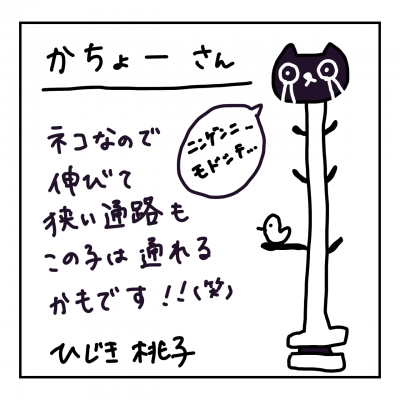 かちょー さん
ニンゲンニ..
モドシテ...
ネコなので
伸びて
狭い通路も
この子は通れる
かもです!!(笑)
ひじき 桃子